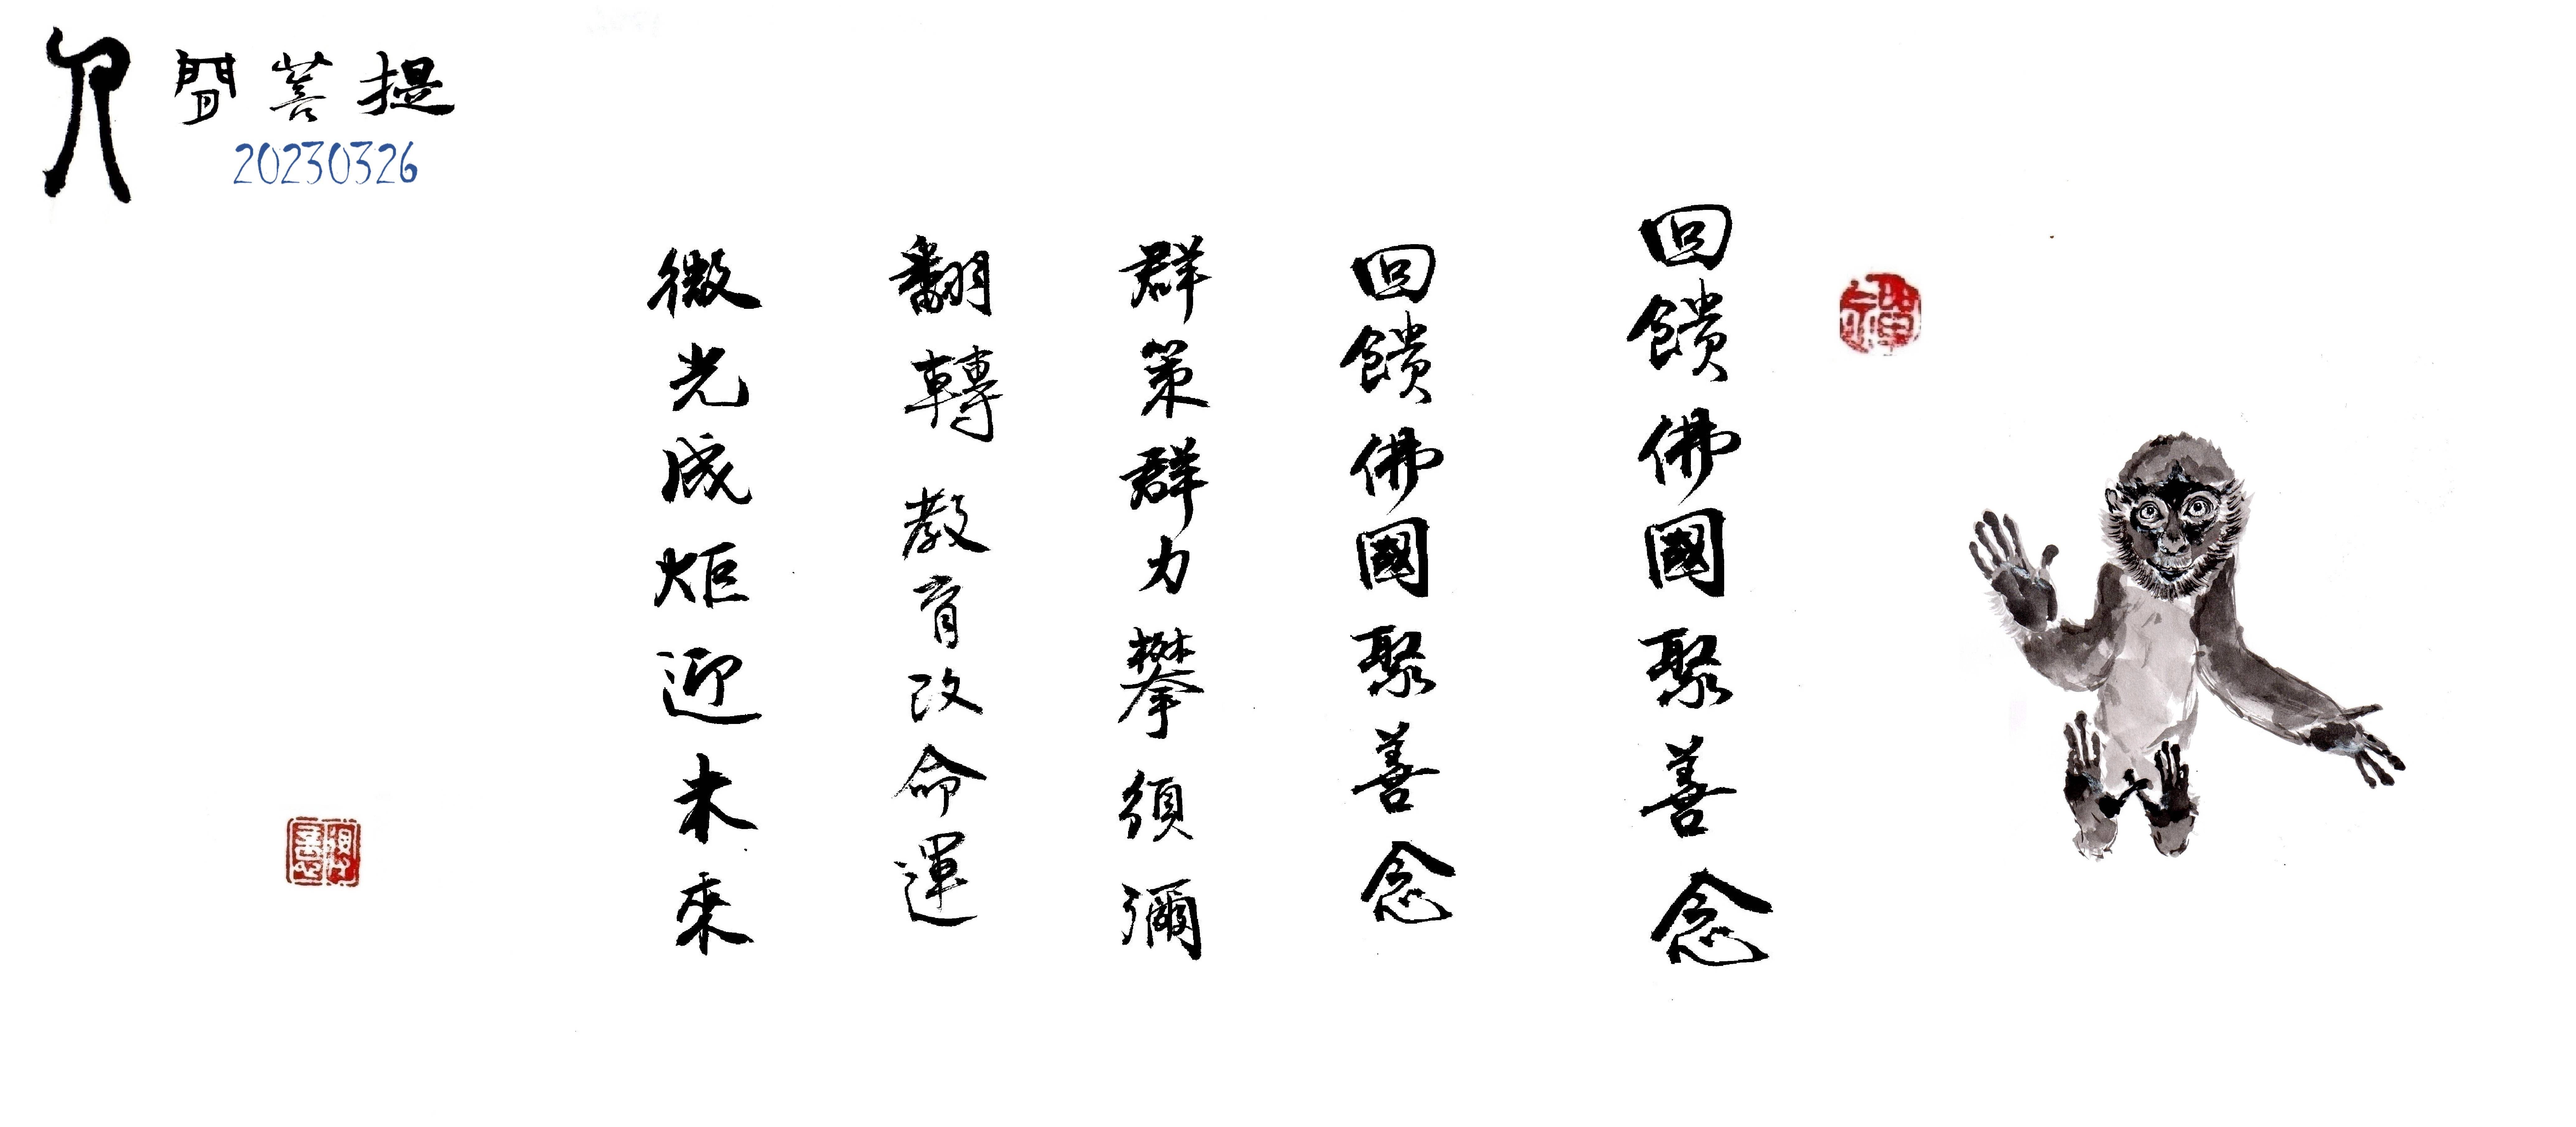 人間菩提
20230326
回饋佛國聚善念
回饋佛國聚善念
群策群力攀須彌
翻轉教育改命運
微光成炬迎未來